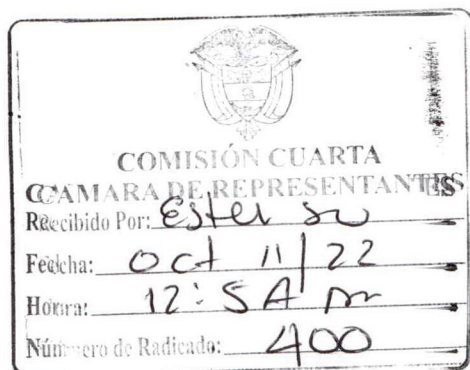 COMISIÓN CUARTA
CÁMARA DE REPRESENTANTES
Recibido Por: Ester
Fecha: Oct 11/22
Hora: 12:5
Número de Radicado: 400